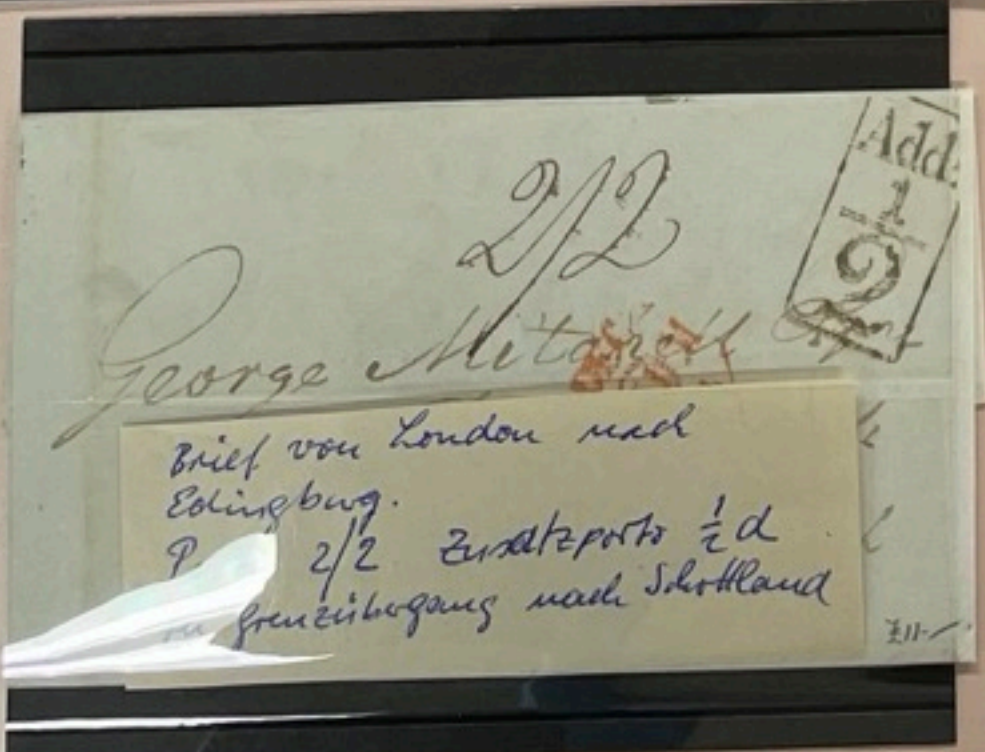 2/2
Add:
1
2
George Mitchell
Brief von London nach
Edingburg.
P 2/2 Zusatzporto ½ d
Grenzübergang nach Schottland